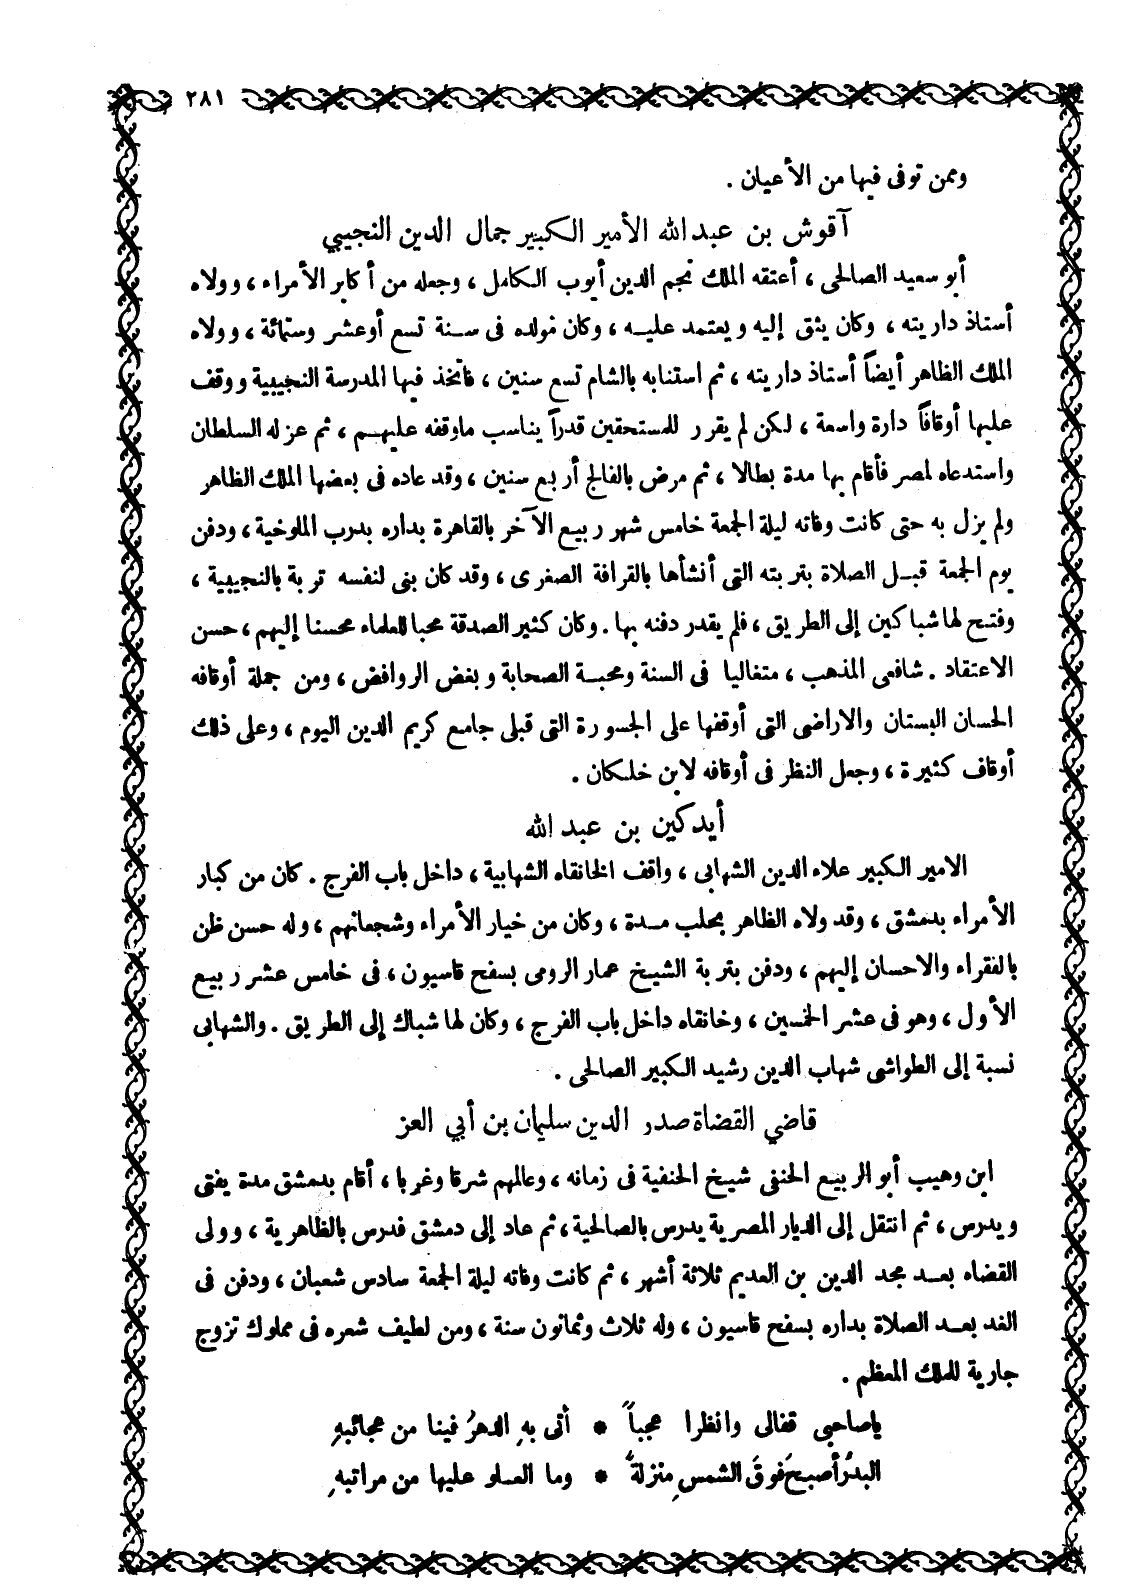 ٢٨١
وممن توفى فيها من الأعيان .
آقوش بن عبد الله الأمير الكبير جمال الدين النجيبي
أبو سعيد الصالحى ، أعتقه الملك نجم الدين أيوب الكامل ، وجعله من أكابر الأمراء ، وولاه
أستاذ داريته ، وكان يثق إليه ويعتمد عليه ، وكان مولده فى سنة تسع أوعشر وستمائة ، وولاه
الملك الظاهر أيضاً أستاذ داريته ، ثم استنابه بالشام تسع سنين ، فاتخذ فيها المدرسة النجيبية ووقف
عليها أوقافاً دارة واسعة ، لكن لم يقرر للمستحقين قدراً يناسب ماوقفه عليهم ، ثم عزله السلطان
واستدعاه لمصر فأقام بها مدة بطالا ، ثم مرض بالفالج أربع سنين ، وقد عاده فى بعضها الملك الظاهر
ولم يزل به حتى كانت وفاته ليلة الجمعة خامس شهر ربيع الآخر بالقاهرة بداره بدرب الملوخية ، ودفن
يوم الجمعة قبل الصلاة بتربته التى أنشأها بالقرافة الصغرى ، وقد كان بنى لنفسه تربة بالنجيبية ،
وفتح لها شباكين إلى الطريق ، فلم يقدر دفنه بها . وكان كثير الصدقة محبا للعلماء محسنا إليهم ، حسن
الاعتقاد . شافعى المذهب ، متغاليا فى السنة ومحبة الصحابة وبغض الروافض ، ومن جملة أوقافه
الحسان البستان والاراضى التى أوقفها على الجسورة التى قبلى جامع كريم الدين اليوم ، وعلى ذلك
أوقاف كثيرة ، وجعل النظر فى أوقافه لابن خلكان .
أيدكين بن عبد الله
الامير الكبير علاء الدين الشهابى ، واقف الخانقاه الشهابية ، داخل باب الفرج . كان من كبار
الأمراء بدمشق ، وقد ولاه الظاهر بحلب مدة ، وكان من خيار الأمراء وشجعانهم ، وله حسن ظن
بالفقراء والاحسان إليهم ، ودفن بتربة الشيخ عمار الرومى بسفح قاسيون ، فى خامس عشر ربيع
الأول ، وهو فى عشر الخمسين ، وخانقاه داخل باب الفرج ، وكان لها شباك إلى الطريق . والشهابى
نسبة إلى الطواشى شهاب الدين رشيد الكبير الصالحى .
قاضي القضاة صدر الدين سليمان بن أبي العز
ابن وهيب أبو الربيع الحنفى شيخ الحنفية فى زمانه ، وعالمهم شرقا وغربا ، أقام بدمشق مدة يفتى
ويدرس ، ثم انتقل إلى الديار المصرية يدرس بالصالحية ، ثم عاد إلى دمشق فدرس بالظاهرية ، وولى
القضاء بعد مجد الدين بن العديم ثلاثة أشهر ، ثم كانت وفاته ليلة الجمعة سادس شعبان ، ودفن فى
الغد بعد الصلاة بداره بسفح قاسيون ، وله ثلاث وثمانون سنة ، ومن لطيف شعره فى مملوك تزوج
جارية للملك المعظم .
ياصاحبي قفالى وانظرا عجباً * أتى بهِ الدهرُ فينا من عجائبهِ
البدرُ أصبحَ فوقَ الشمسِ منزلةً * وما العلو عليها من مراتبهِ